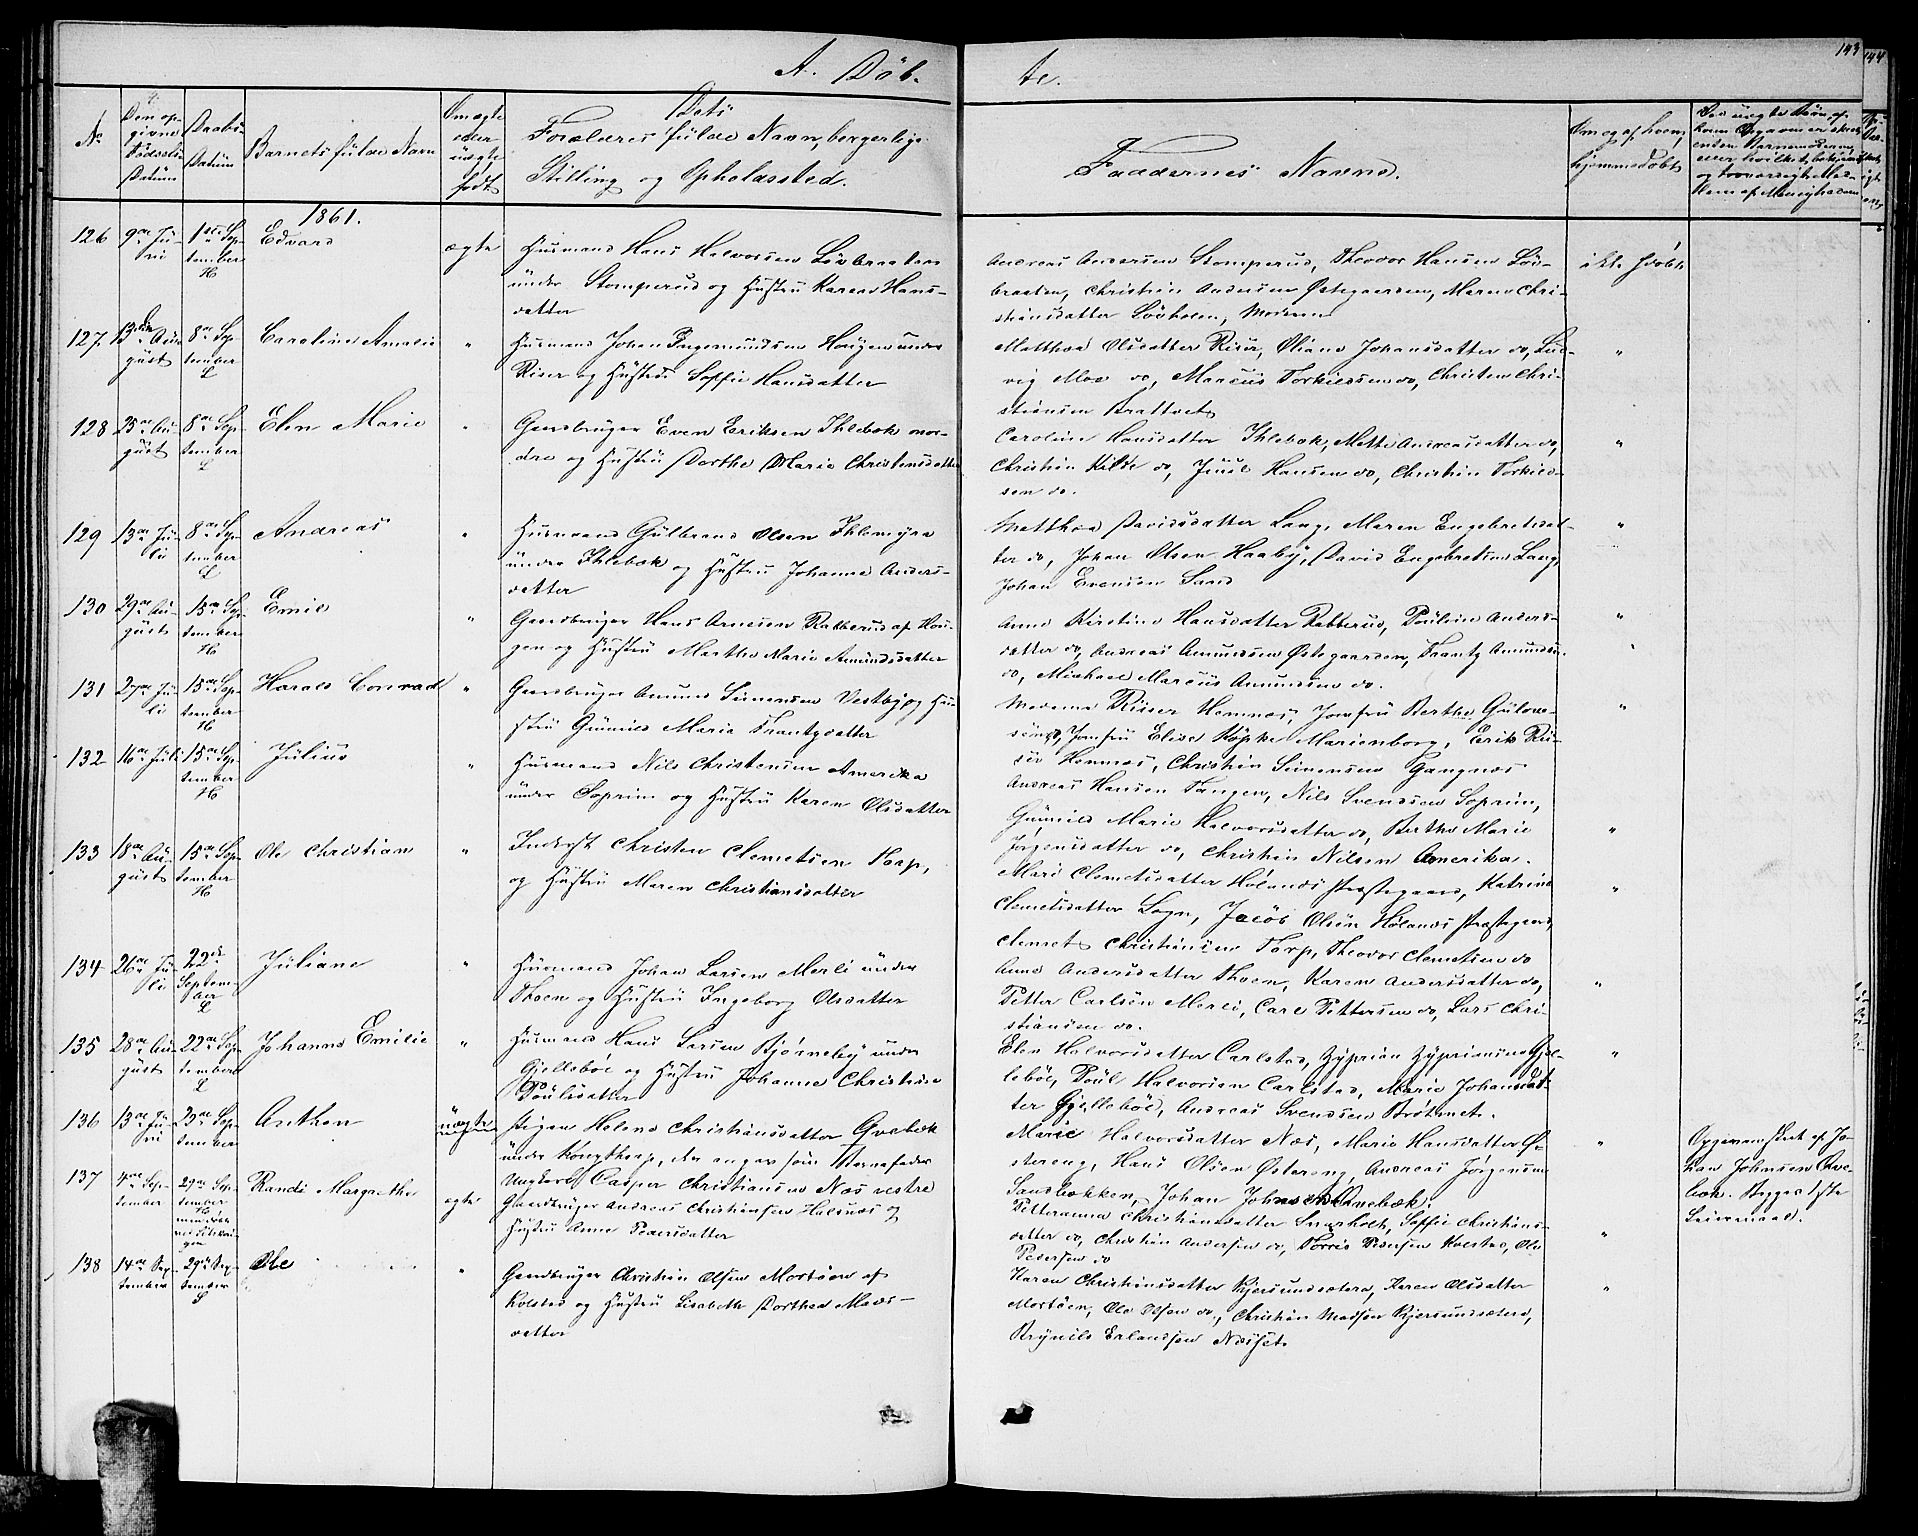 143
144
A. Döb-
te.
No
Den op-
givne
Födsels
Datüm
Daabs
Datüm
Barnets fülde Navn
Om ægte
eller
uægte
födt
Dets
Forældres fülde Navn, borgerlige
Stilling og Opholdssted.
Faddernes Navne.
Om og af hvem
hjemmedöbt
1861.
126 9de Ju-
ni
1ste Sep-
tember
H
Edvard
ægte
Husmand Hans Halvorsen Lövbraaten
under Stomperud og Hustru Karen Hans-
datter
Andreas Andersen Stomperud, Theodor Hansen Löv-
braaten, Christian Andersen Østegaarden, Maren Chri-
stiansdatter Lövholen, Moderen
ikke hjdöbt
127. 13de Aü-
güst
8de Sep-
tember
L
Caroline Amalie
"
Husmand Johan Ingemundsen Hougen under
Riser og Hustru Sophie Hansdatter
Matthea Olsdatter Riser, Oliane Johansdatter do, Lud-
vig Moe do, Marcus Torkildsen do, Christen Chri-
stiansen Brattvet
"
128 25de Au-
güst
8de Sep-
tember
L
Elen Marie
"
Gaardbruger Even Eriksen Ihlebæk nor-
dre og Hustru Dorthe Marie Christensdatter
Caroline Hansdatter Ihlebæk, Mette Andreasdatter do,
Christian Kilde do, Juul Hansen do, Christian Torkild-
sen do.
"
129 13de Ju-
li
8de Sep-
tember
L
Andreas
"
Husmand Gulbrand Olsen Ihlemyra
under Ihlebæk og Hustru Johanne Anders-
datter
Matthea Davidsdatter Lang, Maren Engebretsdat-
ter do, Johan Olsen Haaby, David Engebretsen Lang,
Johan Evensen Sand
"
130 29de Au-
güst
15de Sep-
tember
H
Emil
"
Gaardbruger Hans Arnesen Rakkerud af Hou-
gen og Hustru Marthe Marie Amundsdatter
Anne Kirstine Hansdatter Rakkerud, Pouline Anders-
datter do, Andreas Amundsen Østegaarden, Frantz Amundsn.
do, Michael Marcus Amundsen do.
"
131 27de Ju-
li
15de Sep-
tember
H
Harald Conrad
"
Gaardbruger Amund Simensen Vestby og Hu-
stru Gunild Marie Frantzdatter
Madame Riiser Hemnæs, Jomfru Berthe Gulove-
sen do, Jomfru Elise Köpke Marienborg, Erik Rii-
ser Hemnæs, Christian Simensen Gangnæs
"
132 16de Juli
15de Sep-
tember
H
Julius
"
Husmand Nils Christensen Amerika
under Soprim og Hustru Karen Olsdatter
Andreas Hansen Tangen, Nils Svendsen Soprim,
Gunild Marie Halvorsdatter do, Berthe Marie
Jörgensdatter do, Christian Nilsen Amerika.
"
133 18de Au-
güst
15de Sep-
tember
H
Ole Christian
"
Inderst Christen Clemetsen Torp,
og Hustru Maren Christiansdatter
Mari Clemetsdatter Hölands Præstegaard, Katrine
Clemetsdatter Sogn, Jacob Olsen Hölands Præstegaard,
Clemet Christiansen Torp, Theodor Clemetsen do
"
134 26de Ju-
li
22de
Septem-
ber
L
Juliane
"
Husmand Johan Larsen Merli under
Thoen og Hustru Ingeborg Olsdatter
Anne Andersdatter Thoen, Karen Andersdatter do,
Petter Carlsen Merli, Carl Pettersen do, Lars Chri-
stiansen do.
"
135 28de Au-
güst
22de Sep-
tember
L
Johanne Emilie
"
Husmand Hans Larsen Bjørneby under
Gjelleböl og Hustru Johanne Christine
Poulsdatter
Elen Halvorsdatter Carlstad, Zyprian Zypriansen Gjel-
leböl, Poul Halvorsen Carlstad, Marie Johannesdat-
ter Gjelleböl, Andreas Svendsen Bråtenet.
"
136 13de Ju-
ni
23de Sep-
tember
Anthon
uægte
Pigen Helene Christiansdatter Qvebæk
under Kongthorp, der angav som Barnefader
Ungkarl Casper Christiansen Næs vestre
Marie Halvorsdatter Næs, Marie Hansdatter Ø-
stereng, Hans Olsen Østereng, Andreas Jörgensen
Sandbækken, Johan Johnsen Qvebæk.
"
Opgivende af Jo-
han Johnsen Qve-
bæk. Begges 1ste
Leiermaal.
137 4de Sep-
tember
29de Sep-
tember
Randi Margrethe
ægte
Gaardbruger Andreas Christiansen Halsnæs og
Hustru Anne Pedersdatter
Petteranna Christiansdatter Sverholt, Sophie Christians-
datter do, Christian Andersen do, Torris Pedersen Kolstad, Ole
Pedersen do
"
138 14de Sep-
tember
29de Sep-
tember
L
Ole
"
Gaardbruger Christian Olsen Mortöen af
Kolstad og Hustru Lisabeth Dorthea Mads-
datter
Karen Christiansdatter Kjersundsætra, Karen Olsdatter
Mortöen, Ole Olsen do, Christian Madsen Kjersundsætra,
Brynild Erlandsen Næsset.
"